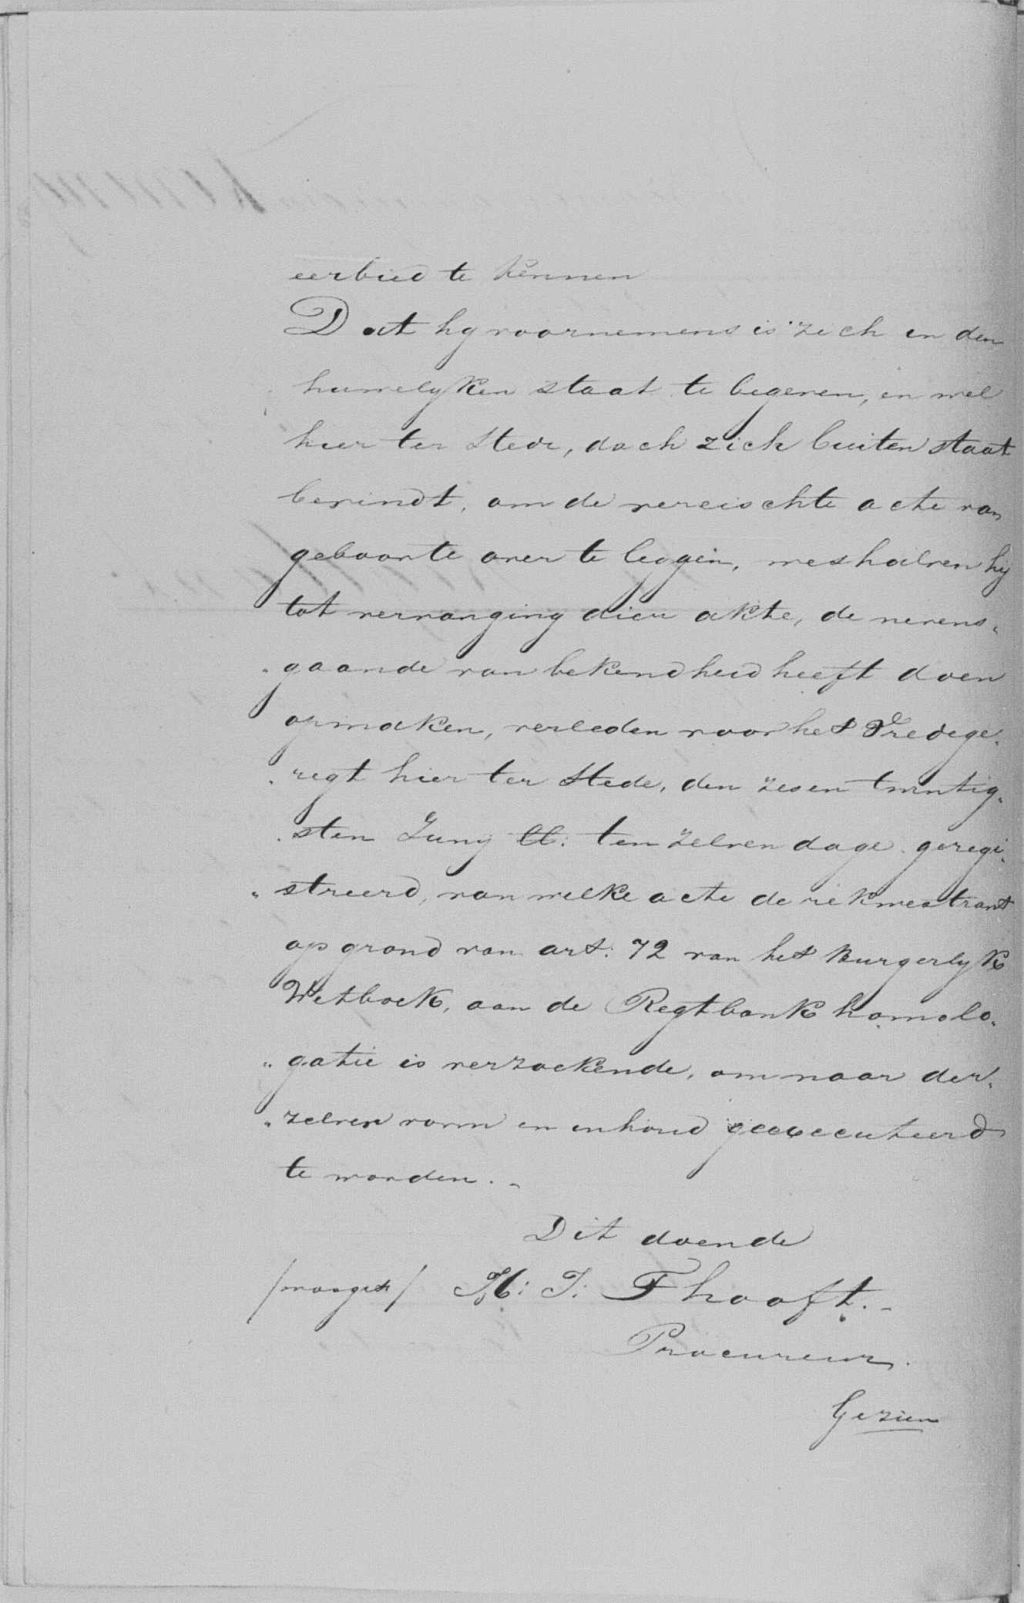 eerbied te kennen
Dat hy voornemens is zich in den
huwelyken staat te begeven, en wel
hier ter Stede, doch zich buiten staat
bevindt, om de vereischte acte van
geboorte over te leggen, weshalven hy
tot vervanging dier akte, de nevens„
„gaande van bekendheid heeft doen
opmaken, verleden voor het Vredege„
„regt hier ter Stede, den zesen twintig„
„sten Juny ll: ten zelven dage geregi„
„streerd, van welke acte de rekwestrant
op grond van art: 72 van het Burgerlyk
Wetboek, aan de Regtbank homolo„
„gatie is verzoekende, om naar der„
„zelver vorm en inhoud geexecuteerd
te worden. „
Dit doende
/wasget/ H: J: T hooft. „
Procureur.
Gezien